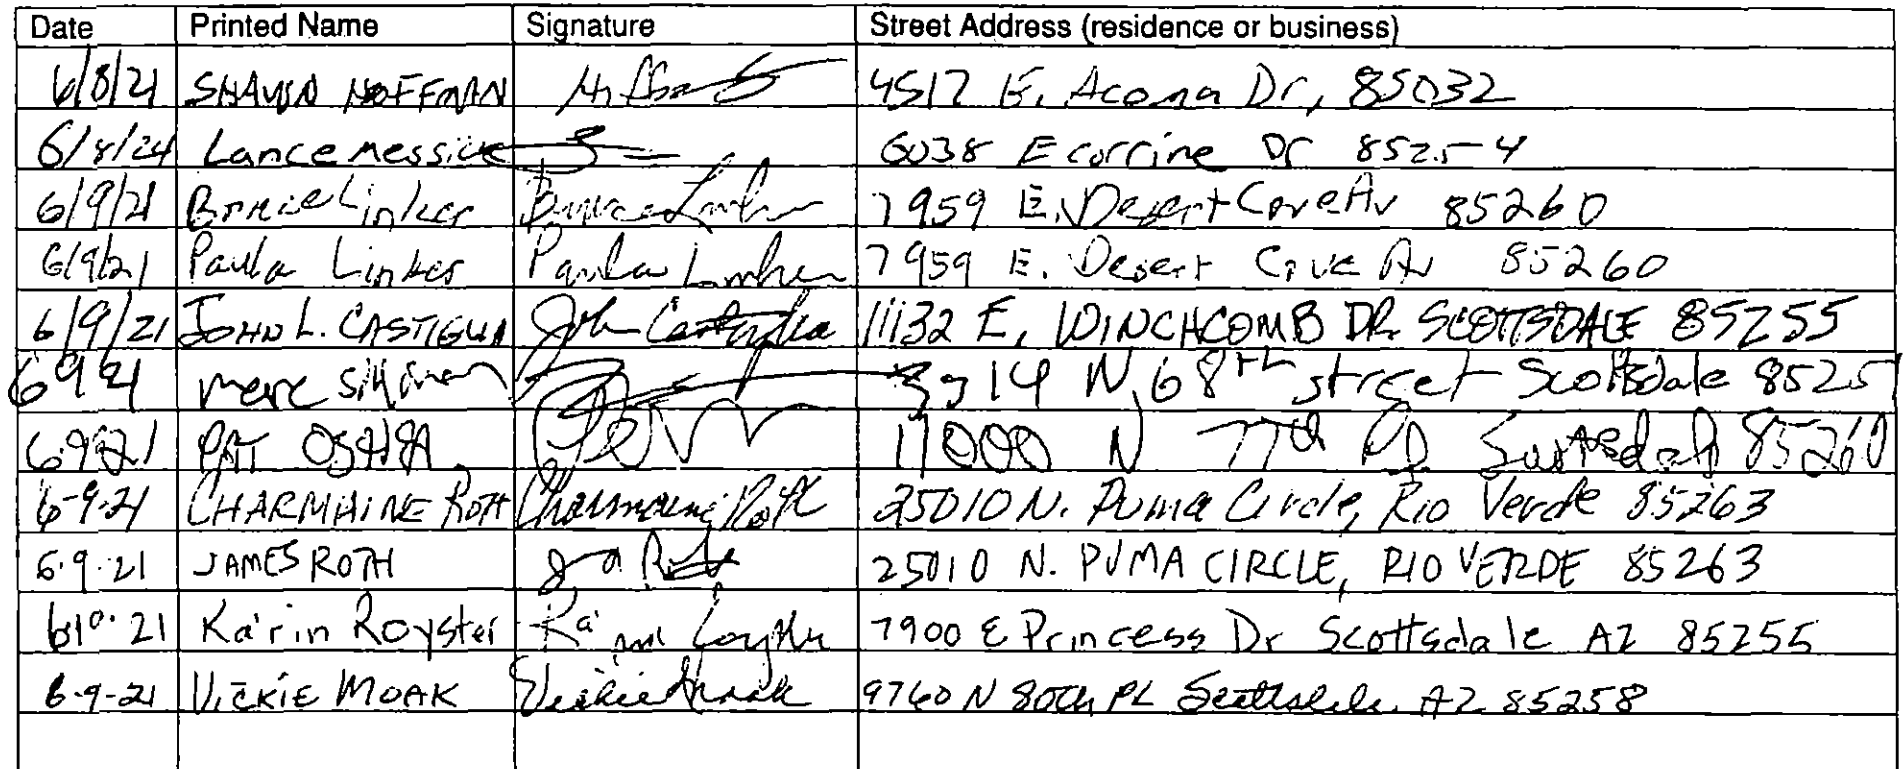 Date Printed Name Signature Street Address (residence or business)
6/8/21 SHAWN HOFFMAN 4517 E. Acoma Dr, 85032
6/8/21 Lance Messick 6038 E corrine Dr 85254
6/9/21 Bruce Linker Bruce Linker 7959 E. Desert Cove Av 85260
6/9/21 Paula Linker Paula Linker 7959 E. Desert Cove Av 85260
6/9/21 JOHN L. CASTIGLIA John Castiglia 11132 E, WINCHCOMB DR. SCOTTSDALE 85255
6 9 21 14 N 68th street Scottsdale 85251
6-9-21 PAT 11000 N 77th Pl Scottsdale 85260
6-9-21 CHARMAINE ROTH Charmaine Roth 25010 N. Puma Circle, Rio Verde 85263
6.9.21 JAMES ROTH 25010 N. PUMA CIRCLE, RIO VERDE 85263
6 10. 21 Ka'rin Royster Ka'rin Royster 7900 E Princess Dr Scottsdale AZ 85255
6-9-21 VICKIE MOAK Vickie Moak 9760 N 80th PL Scottsdale. AZ 85258